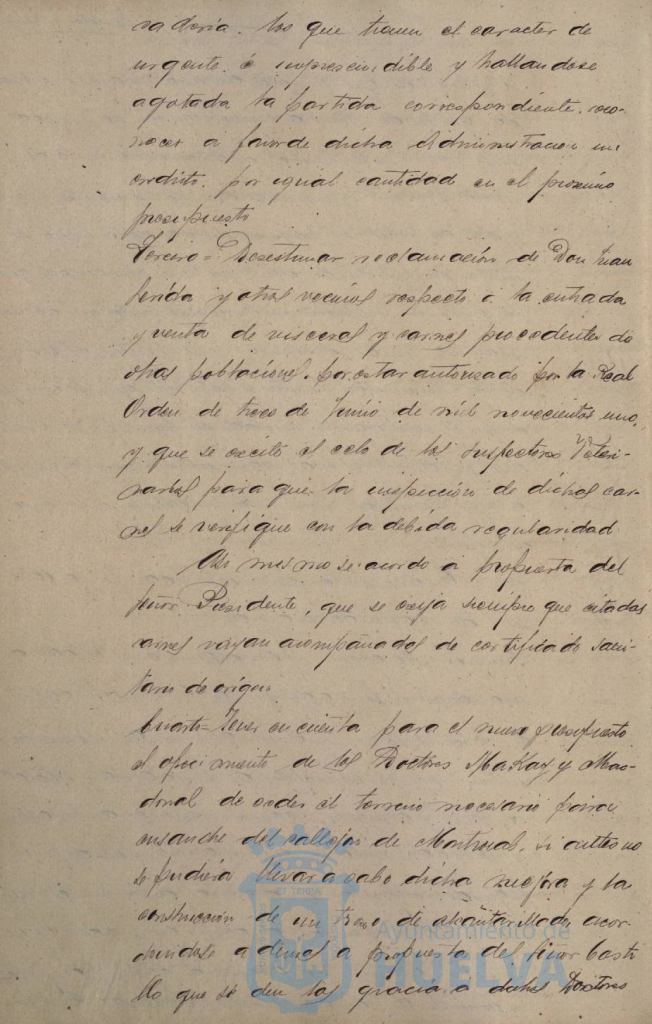 radoria. los que tienen el caracter de
urgente é imprescindible y hallandose
agotada la partida correspondiente, reco-
nocer a favor de dicha Administracion un
credito por igual cantidad en el proximo
presupuesto
Tercero = Desestimar reclamación de Don Juan
y otros vecinos respecto a la entrada
y venta de visceras y carnes procedentes de
otras poblaciones, por estar autorizado por la Real
Orden de trece de Junio de mil novecientos uno,
y que se excite el celo de los Inspectores Veteri-
narios para que la inspección de dichas car-
nes se verifique con la debida regularidad
Asi mismo se acordo a propuesta del
señor Presidente, que se exija siempre que citadas
carnes vayan acompañadas de certificado sani-
tario de origen
Cuarto = Tener en cuenta para el nuevo presupuesto
el ofrecimiento de los Doctores MaKay y Mac-
donal de ceder el terreno necesario para
ensanche del callejon de Montrocal, si antes no
se pudiera llevar a cabo dicha mejora y la
construcción de un trozo de alcantarillado, acor-
dandose ademas a propuesta del señor Casti
llo que se den las gracias a dichos Doctores
Ayuntamiento de
HUELVA